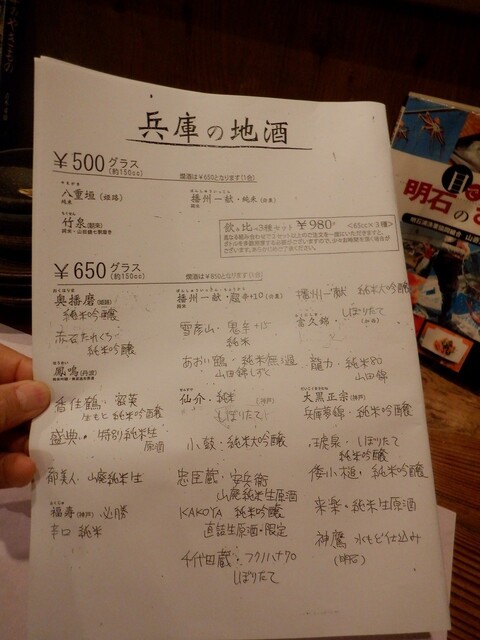 兵庫の地酒
¥500 グラス (約150cc)
燗酒は¥650となります(1合)
八重垣 (姫路)
純米
播州一献・純米 (宍粟)
純米
竹泉 (朝来)
飲み比べ3種セット ¥980- <65cc×3種>
¥650 グラス (約150cc)
奥播磨 (姫路)
純米吟醸
播州一献・超辛+10 (宍粟)
純米
播州一献 純米大吟醸
しぼりたて
純米吟醸
雪彦山・鬼辛+15
純米
富久錦・
(加西)
あおい鶴・純米無濾過
山田錦しずく
龍力・純米80
山田錦
鳳鳴 (丹波)
香住鶴・
生もと純米吟醸
仙介・純米 (神戸)
しぼりたて
大黒正宗 (神戸)
兵庫夢錦・純米吟醸
盛典・特別純米生
原酒
小鼓・純米大吟醸
琥泉・しぼりたて
純米吟醸
都美人・山廃純米生
忠臣蔵・安兵衛
山廃純米生原酒
倭小槌・純米吟醸
福寿 (神戸) 必勝
辛口 純米
KAKOYA 純米吟醸
直詰生原酒・限定
来楽・純米生原酒
千代田蔵・フクノハナ70
しぼりたて
神鷹 水もと仕込み
(明石)
明石の